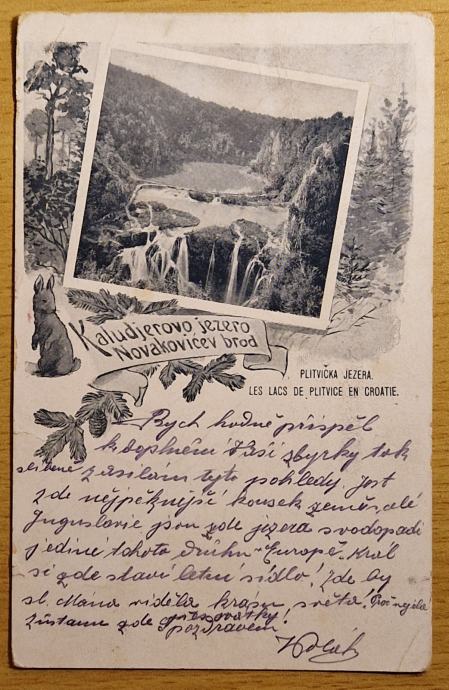 Kaludjerovo jezero
Novakovićev brod
PLITVIČKA JEZERA.
LES LACS DE PLITVICE EN CROATIE.
Bych hodně přispěl
k doplnění Vaší zbyrky tak
slíbené zasílám tyto pohledy. Jest
zde nějpěknější kousek země, celé
Juguslavie jsou zde jezera s vodopadi
jediné tohoto druhu v Europě. Kral
si zde staví letni sídlo! Zde by
sl. Mána viděla krásu světa!
zůstanu zde přes svátky!
pozdravem